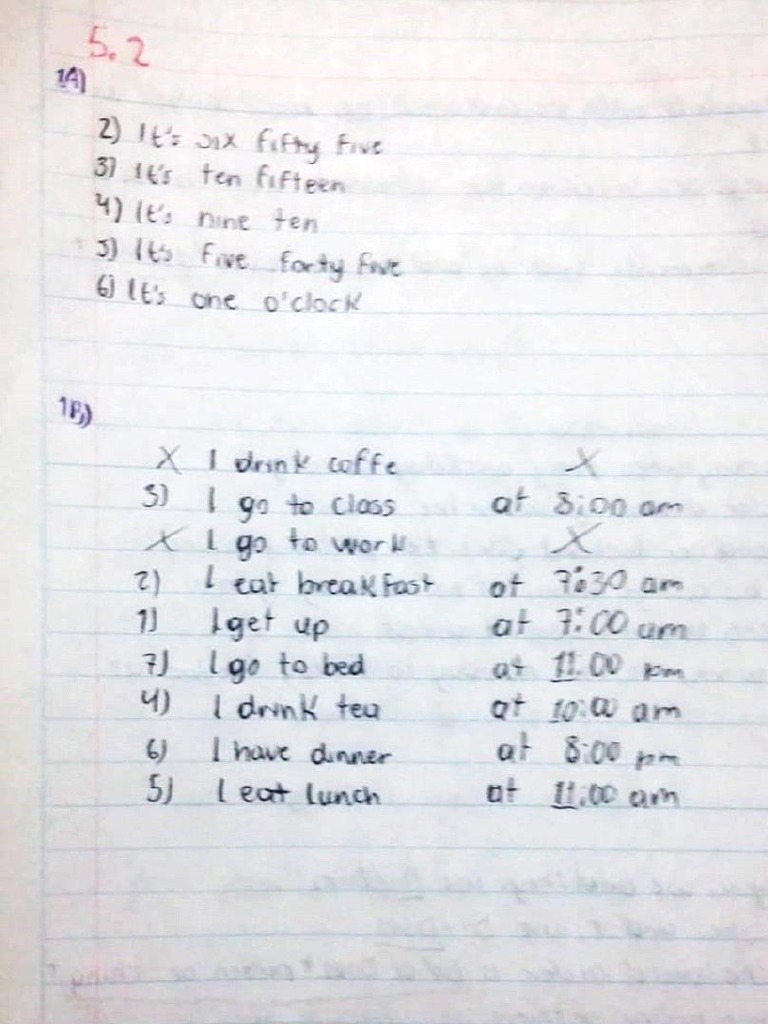 5.2
1A)
2) It's six fifty five
3) It's ten fifteen
4) It's nine ten
5) It's five forty five
6) It's one o'clock
1B)
X I drink coffe X
3) I go to class at 8:00 am
X I go to work X
2) I eat breakfast at 7:30 am
1) I get up at 7:00 am
7) I go to bed at 11:00 pm
4) I drink tea at 10:00 am
6) I have dinner at 8:00 pm
5) I eat lunch at 11:00 am